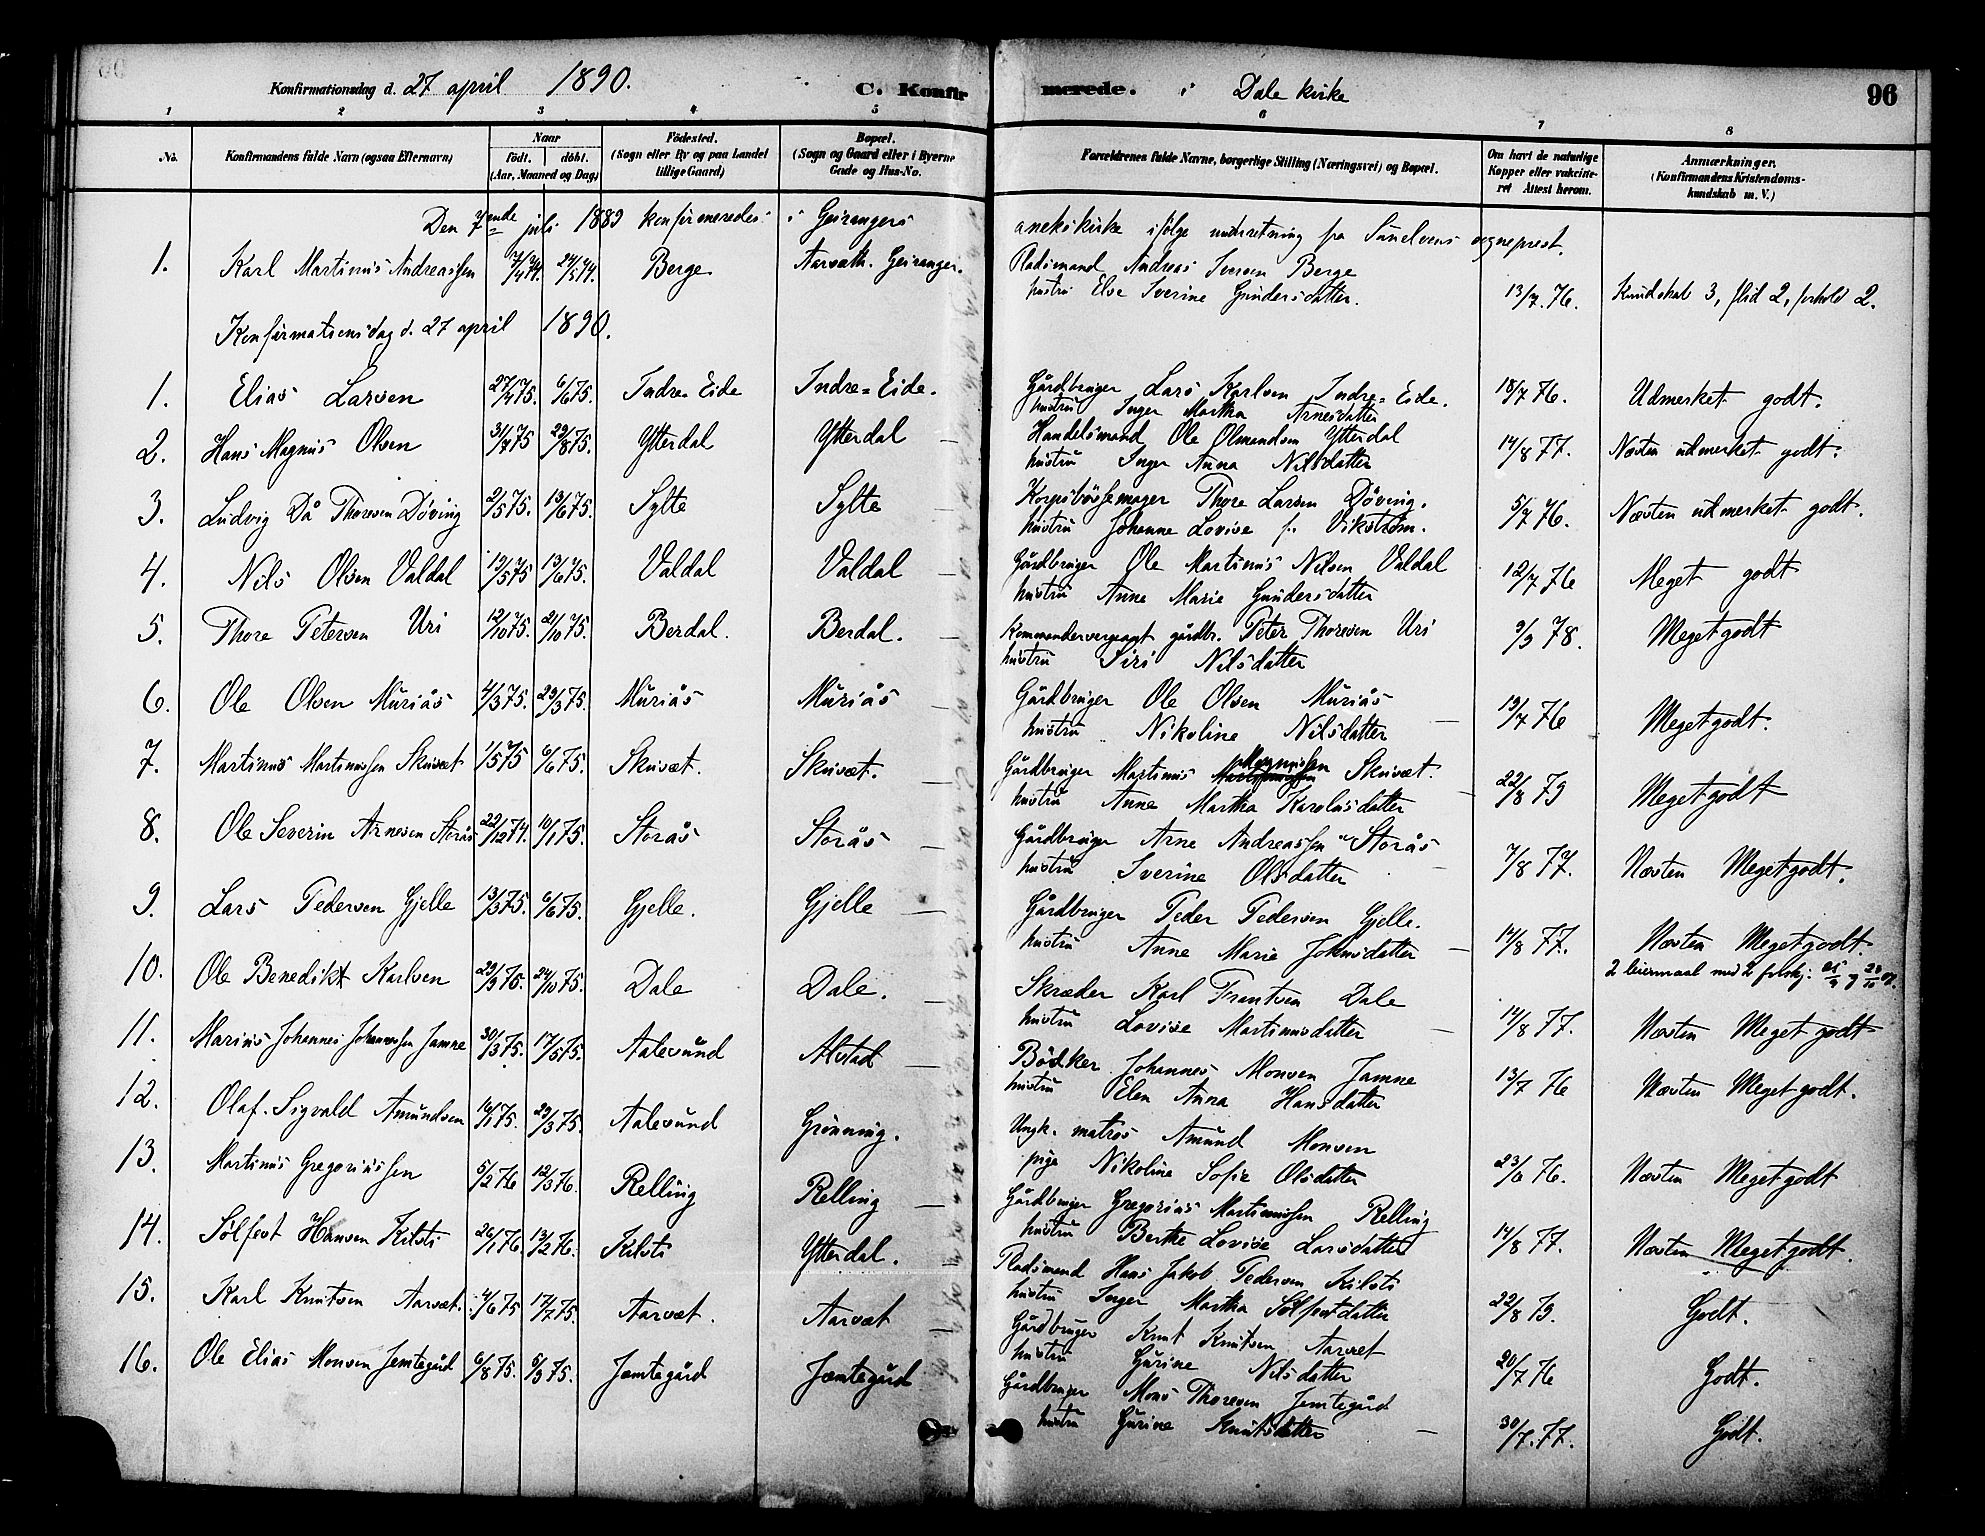 Konfirmationsdag d. 27 april 1890. C. Konfirmerede. i Dale kirke 96
1 2 3 4 5 6 7 8
No. Konfirmandens fulde Navn (ogsaa Efternavn) Naar födt. döbt. (Aar, Maaned og Dag) Födested. (Sogn eller By og paa Landet tillige Gaard) Bopæl. (Sogn og Gaard eller i Byerne Gade og Hus-No. Forældrenes fulde Navne, borgerlige Stilling (Næringsvei) og Bopæl. Om havt de naturlige Kopper eller vakcineret Attest herom. Anmærkninger. (Konfirmandens Kristendomskundskab m. V.)
Den 7ende juli 1889 konfirmeredes i Geirangers anekskirke ifölge underretning fra Sunelvens sogneprest.
1. Karl Martinus Andreassen 7/4 74. 24/5 74. Berge Aarvæth. Geiranger. Pladsmand Andreas Iversen Berge
hustru Else Sverine Gundersdatter. 13/7. 76. Kundskab 3, flid 2, forhold 2.
Konfirmationsdag d. 27 april 1890.
1. Elias Larsen 27/4 75. 6/6 75. Indre-Eide Indre-Eide. Gårdbruger Lars Karlsen Indre-Eide. 18/7 76. Udmerket godt.
hustru Inger Martha Arnesdatter
2. Hans Magnus Olsen 31/7 75 29/8 75. Ytterdal Ytterdal Handelsmand Ole Olmandsen Ytterdal 14/8 77. Næsten udmerket godt.
hustru Inger Anna Nilsdatter
3. Ludvig Då Thoresen Döving 2/5 75. 13/6 75. Sylte Sylte Korpsbössemager Thore Larsen Döving. 5/7 76. Næsten udmerket godt.
hustru Johanne Lovise f. Vikström.
4. Nils Olsen Valdal 19/5 75 13/6 75. Valdal Valdal Gårdbruger Ole Martinus Nilsen Valdal 12/7 76 Meget godt
hustru Anne Marie Gundersdatter
5. Thore Petersen Uri 12/10 75. 21/10 75. Berdal. Berdal. gårdbr. Peter Thoresen Uri 9/9 78. Meget godt
hustru Siri Nilsdatter
6. Ole Olsen Muriås 4/3 75. 29/3 75. Muriås Muriås Gårdbruger Ole Olsen Muriås 19/7 76 Meget godt.
hustru Nikoline Nilsdatter
7. Martinus Martinussen Skuvæt 1/5 75 6/6 75. Skuvæt. Skuvæt. Gårdbruger Martinus Magnussen Skuvæt. 22/8 79 Meget godt
hustru Anne Martha Karolusdatter
8. Ole Severin Arnesen Storås 22/12 74. 10/1 75. Storås Storås Gårdbruger Arne Andreassen Storås 7/8 77. Næsten Meget godt.
hustru Sverine Olsdatter
9. Lars Pedersen Gjelle 13/3 75. 6/6 75. Gjelle. Gjelle Gårdbruger Peder Pedersen Gjelle. 14/8 77. Næsten Meget godt.
hustru Anne Marie Johnsdatter
10. Ole Benedikt Karlsen 29/9 75. 24/10 75. Dale Dale. Skræder Karl Frantsen Dale 14/8 77. 2 leiermaal med 2 forskj: Næsten Meget godt
hustru Lovise Martinusdatter
11. Marius Johannes Johannessen Jamne 30/3 75. 17/5 75. Aalesund Alstad Bödker Johannes Monsen Jamne 13/7 76 Næsten Meget godt.
hustru Elen Anna Hansdatter
12. Olaf Sigvald Amundsen 16/1 75. 29/3 75. Aalesund Grönning. Ungk. matros Amund Monsen
pige Nikoline Sofie Olsdatter 23/6 76. Næsten Meget godt
13. Martinus Gregoriussen 5/2 76 12/3 76. Relling Relling Gårdbruger Gregorius Martinussen Relling
hustru Berthe Lovise Larsdatter 14/8 77. Næsten Meget godt.
14. Sölfest Hansen Kilsti 26/1 76. 13/2 76. Kilsti Ytterdal. Pladsmand Hans Jakob Pedersen Kilsti
hustru Inger Martha Sölfestdatter 22/8 79. Godt.
15. Karl Knutsen Aarvæt. 4/6 75 17/7 75. Aarvæt. Aarvæt Gårdbruger Knut Knutsen Aarvæt
hustru Gurine Nilsdatter 20/7 76 Godt.
16. Ole Elias Monsen Jemtegård 6/8 75. 5/9 75. Jæmtegård Jæmtegård Gårdbruger Mons Thoresen Jemtegård
hustru Gurine Knutsdatter 30/7. 77. Godt.